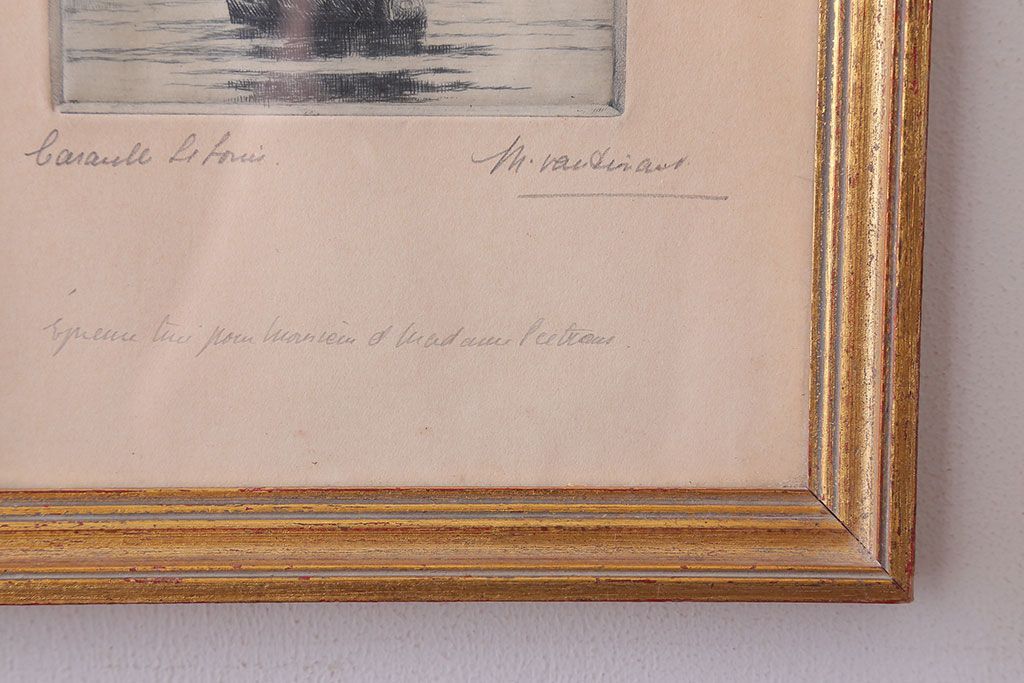 Caravelle St Louis.
M. van Dinant
Epreuve tiré pour Monsieur & Madame